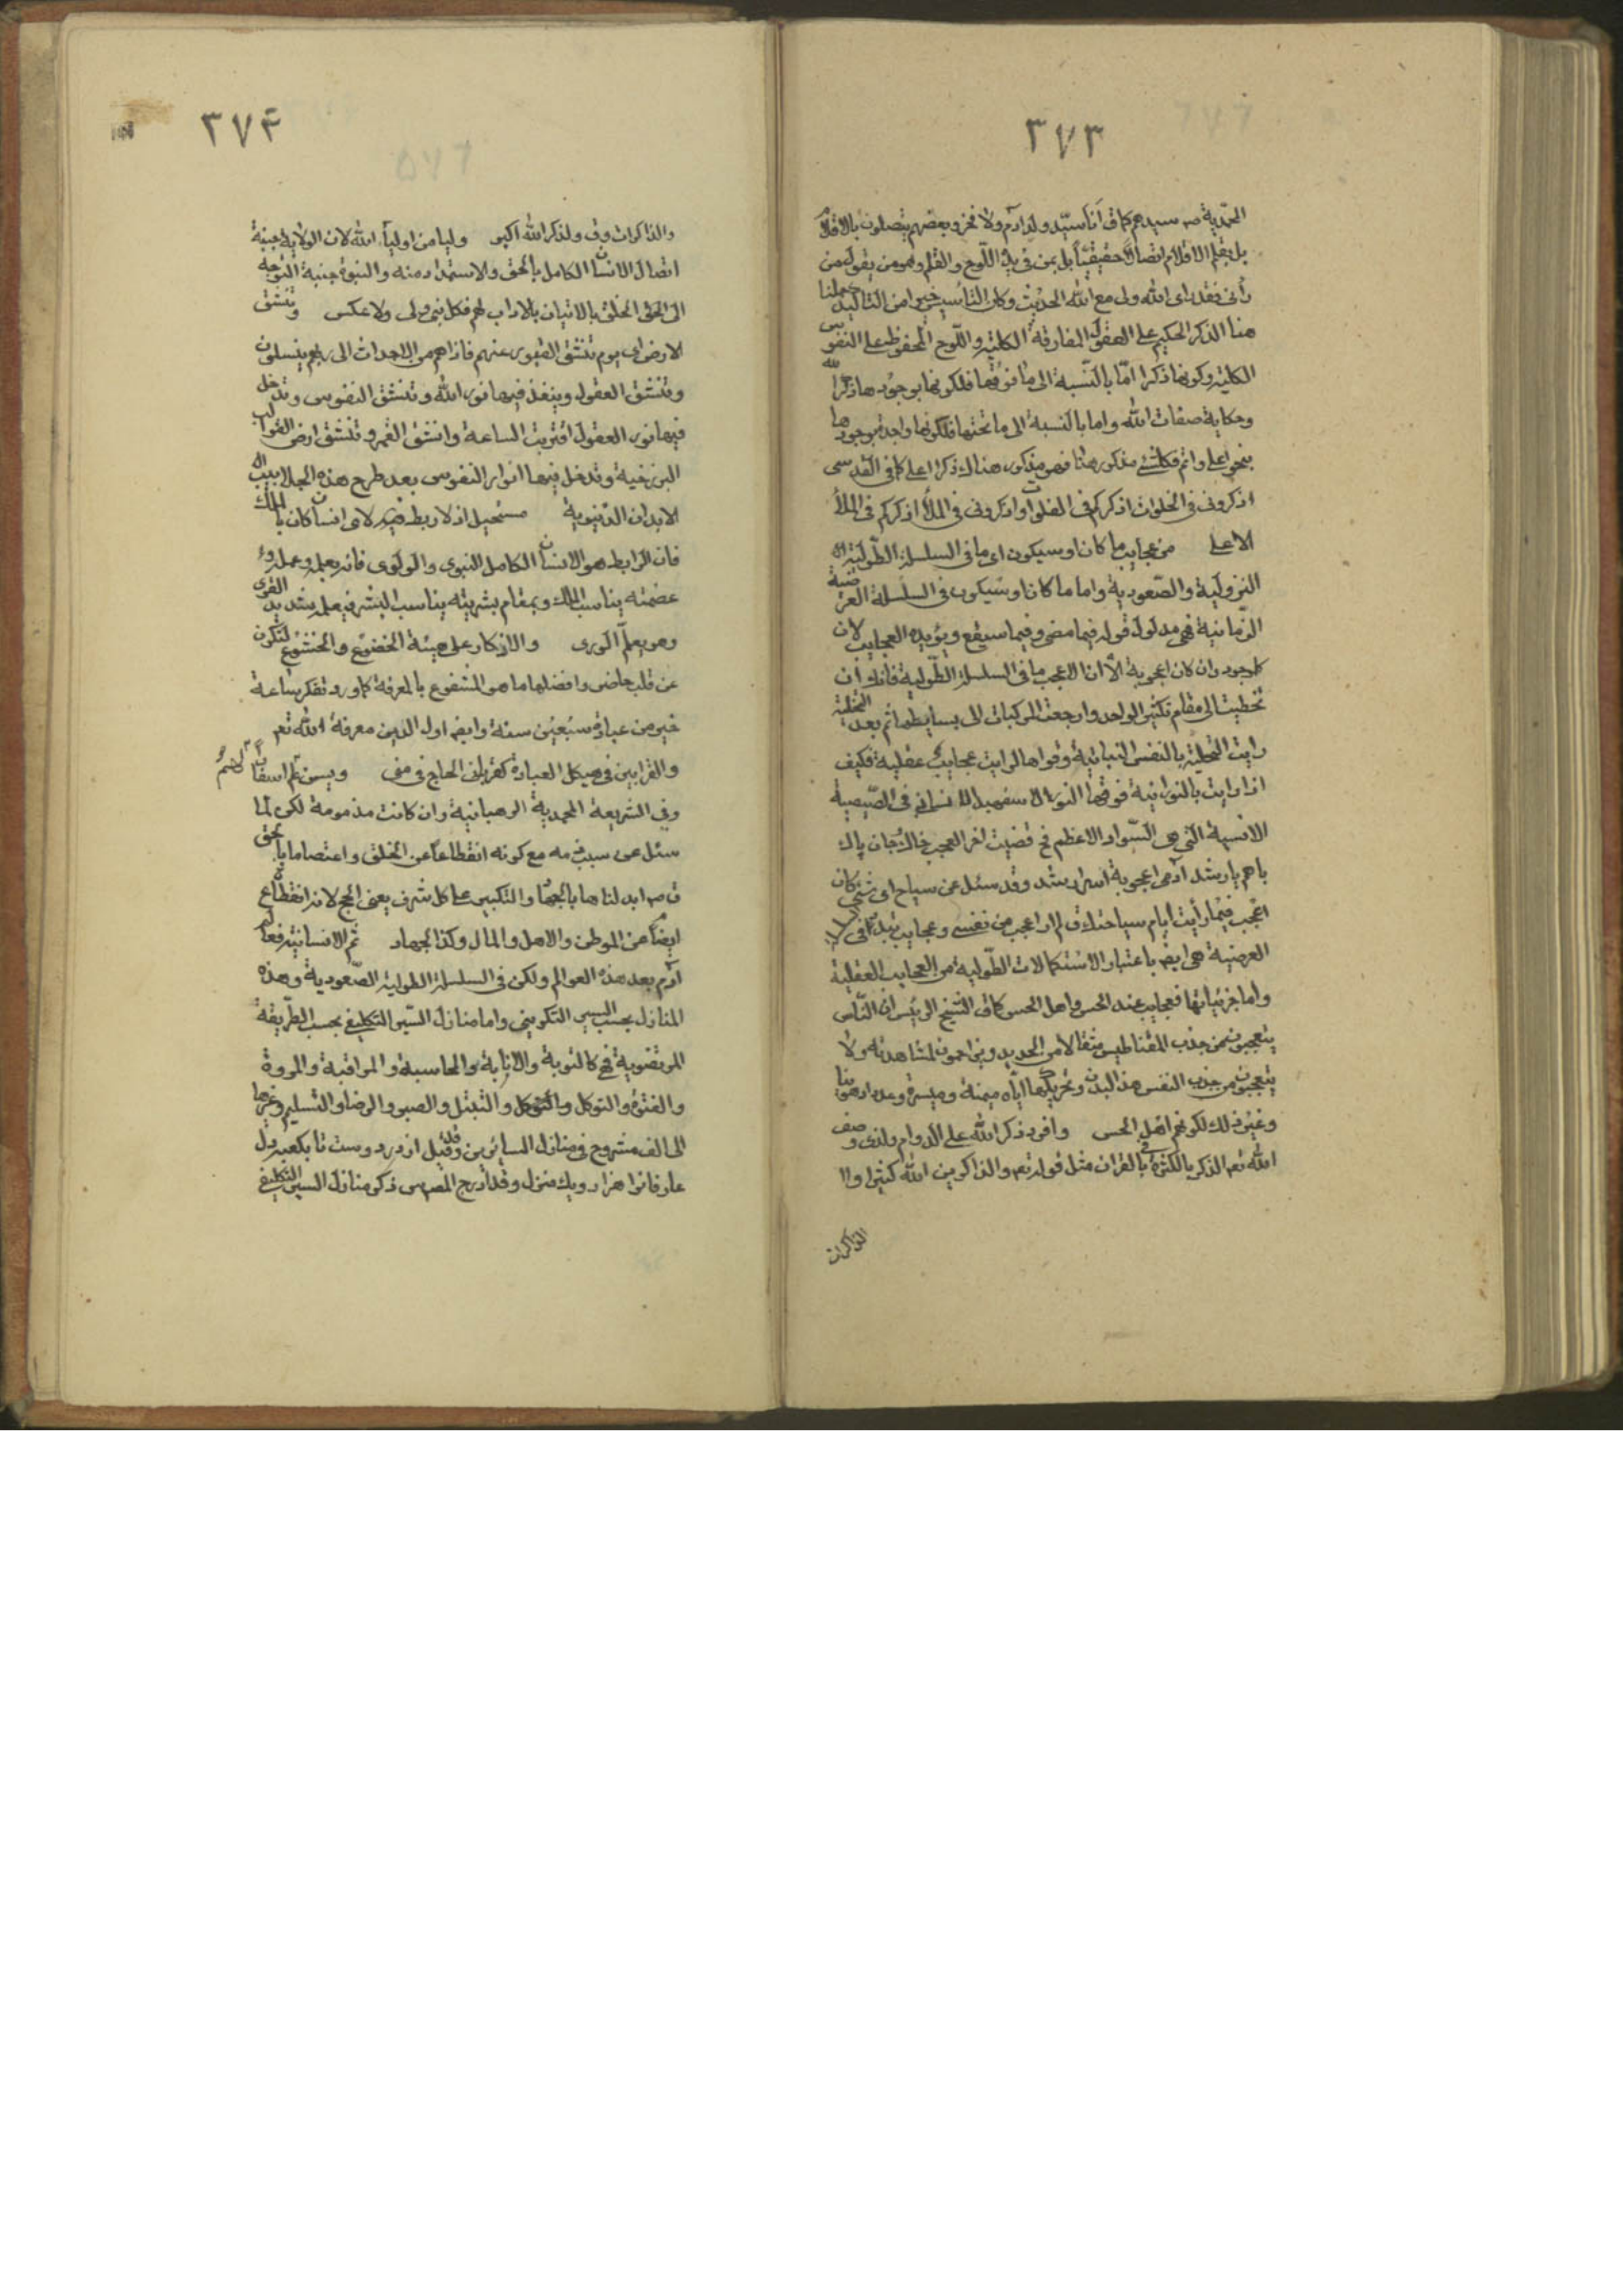 ٣٧٣
المحمّدية ص سيدهم كما ق أنا سيّد ولد آدم ولا فخر وبعضهم يتصلون بالاقلام
بل بقلم الاقلام اتصالاً حقيقيّاً بل بمن في يده اللّوح والقلم ولهو من يقول من
رأنى فقد رأى الله ولى مع الله الحديث وكان التأسيس خيرا من التاكيد حملنا
هنا الذكر الحكيم على العقول المفارقة الكلية واللّوح المحفوظ على النفوس
الكلية وكونها ذكرا امّا بالنّسبة الى ما فوقها فلكونها بوجودها ذكراً لله
وحكاية صفات الله واما بالنسبة الى ما تحتها فلكونها واجدة بوجودها
بنحو اعلى واتم فكلشئ مذكور هنا فهو مذكور هناك ذكرا اعلى كما في القدسى
اذكرونى في الخلوات اذكركم في الفلوات واذكرونى في الملأ اذكركم في الملأ
الاعلى من عجايب ما كان وسيكون اى ما في السلسلة الطّولية
النزولية والصّعودية واما ما كان وسيكون في السلسلة العرضية
الزّمانية فهى مدلول قوله فيما مضى وفيما سيقع ويؤيده العجايب لان
كل موجود وان كان اعجوبة الّا ان الاعجب ما في السلسلة الطّولية فانك ان
تخطيت الى مقام تكثير الواحد وارجعت المركبات الى بسايطها ثم بعد التخلية
رايت التحلية بالنفس النباتية وقواها لرايت عجايب عقلية فكيف
اذا رايت بالنورانية فوقها النور الاسفهبد الانسانى في الصّيصية
الانسية التى هى السّواد الاعظم فح قضيت اخر العجب خاك وجان پاك
باهم يار شد آدمى اعجوبة اسرار شد وقد سئل عن سياح اى شئ كان
اعجب فيما رأيت أيام سياحتك ق لم ار اعجب من نفسى وعجايب
العرضية هى ايضا باعتبار الاستكمالات الطّولية من العجايب العقلية
واما جزئياتها فعجايب عند الحس واهل الحس كما ق الشيخ الرئيس ان النّاس
يتعجبون من جذب المقناطيس مثقالا من الحديد ويزاحمون لمشاهدته ولا
يتعجبون من جذب النفس هذا البدن وتحريكها ايّاه ميمنة وميسرة وعدوا وهونا
وغير ذلك لكونهم اهل الحس وافرد ذكر الله على الدوام ولذى وصف
الله تعه الذكر بالكثرة في القران مثل قوله تعه والذاكرين الله كثيرا وا
الذاكرات
٣٧۴
والذاكرات وق ولذكر الله اكبر وليا من اولياء الله لان الولاية جنبة
اتصال الانسان الكامل بالحق والاستمداد منه والنبوة جنبة التوجه
الى الخلق بالاتيان بالاداب لهم فكل نبى ولى ولا عكس وتنشق
الارض اى يوم تنشق القبور عنهم فاذا هم من الاجداث الى ربهم ينسلون
وتنشق العقول وينفذ فيها نور الله وتنشق النفوس وتدخل
فيها نور العقول اقتربت الساعة وانشق القمر وتنشق ارض القوالب
البرزخية وتدخل فيها انوار النفوس بعد طرح هذه الجلابيب اى
الابدان الدّنيوية مستحيل اذ لا ربط لاى انسان كان بالملك
فان الرابط هو الانسان الكامل النبوى والولوى فانه بعلمه وعمله و
عصمته يناسب الملك وبمقام بشريته يناسب البشر فيعلمه شديد القوى
وهو يعلم الورى والاذكار على هيئة الخضوع والخشوع لتكون
عن قلب حاضر وافضلها ما هو المشفوع بالمعرفة كما ورد تفكر ساعة
خير من عبادة سبعين سنة وايضا اول الدين معرفة الله تعه
والقرابين في هيكل العبادة كقربان الحاج في منى ويسن لهم اسفار
وفي الشريعة المحمدية الرهبانية وان كانت مذمومة لكن لما
سئل عن سبب ذمه مع كونه انقطاعاً عن الخلق واعتصاما بالحق
ق ص ابدلنا ها بالجهاد والتكبير على كل شرف يعنى الحج لانه انقطاع
ايضاً عن الموطن والاهل والمال وكذا الجهاد ثم الانسانية
آدم بعد هذه العوالم ولكن في السلسلة الطولية الصّعودية وهذه
المنازل بحسب السير التكوينى واما منازل السّير التكليفى بحسب الطّريقة
المرتضوية فهى كالتوبة والانابة والمحاسبة والمراقبة والمروة
والفتوة والتوكل والتبتل والصبر والرضا والتسليم وغيرها
الى الف مشروح في منازل السائرين وقد قيل از در دوست تا بكعبه دل
عارفانرا هزار ويك منزل وقد ادرج المص ذكر منازل السير التكليفى